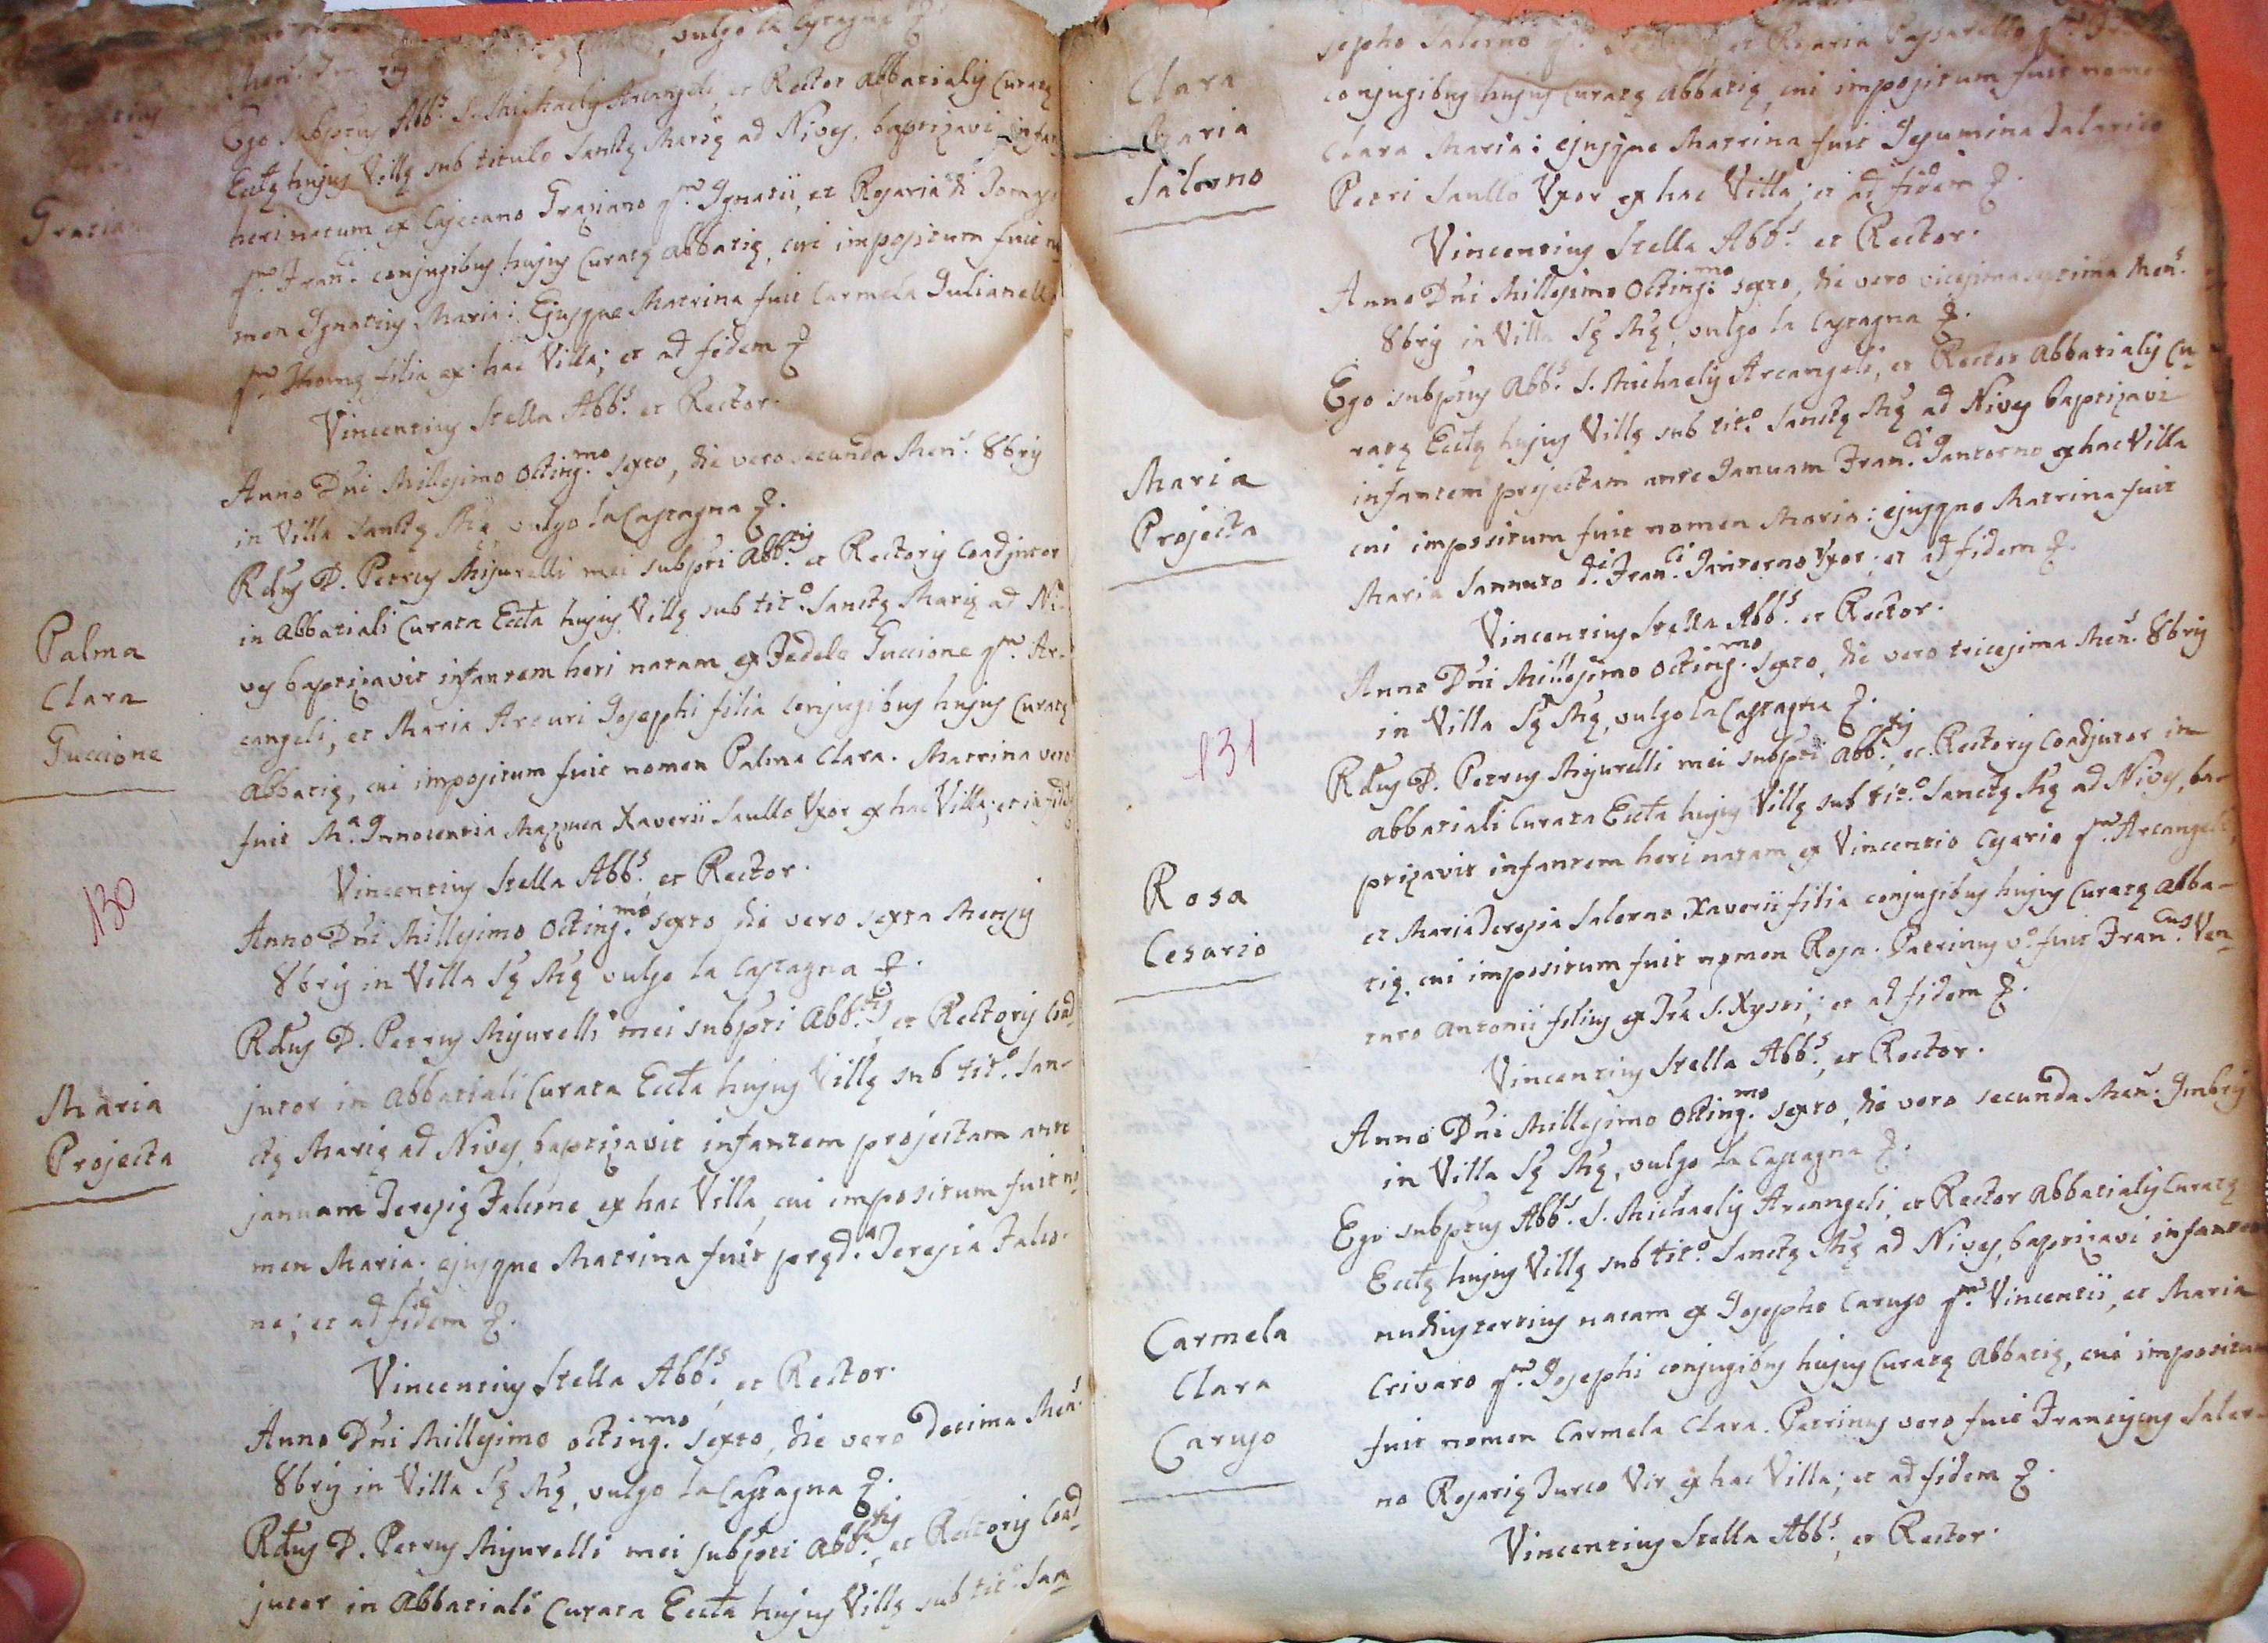 vulgo la Castagna &.
Ego subptus Abb.s S. Michaelis Arcangeli, et Rector Abbatialis Curatę
Ecctę hujus Villę sub titulo Sanctę Marię ad Nives, baptizavi infan
heri natum ex Cajetano Graziano q.m Ignatii, et Rosaria di Tomaso
q.m Fran.ci conjugibus hujus Curatę Abbatię, cui impositum fuit no
men Ignatius Maria: Ejusque Matrina fuit Carmela Julianello
q.m Thomę filia ex hac Villa; et ad fidem &
Vincentius Stella Abb.s et Rector.
Gratia
Anno Dni Millesimo Octing.mo sexto, die vero secunda Men.s 8bris
in Villa Sanctę Mę, vulgo la Castagna &.
Rdus D. Petrus Misurelli mei subpti Abb.tis et Rectoris Coadjutor
in Abbatiali Curata Eccta hujus Villę sub tit.o Sanctę Marię ad Ni-
ves baptizavit infantem heri natam ex Fedele Guccione q.m Ar-
cangeli, et Maria Arcuri Josephi filia conjugibus hujus Curatę
Abbatię, cui impositum fuit nomen Palma Clara. Matrina vero
fuit M.a Innocentia Mazzuca Xaverii Saullo Uxor ex hac Villa; et in fidę
Vincentius Stella Abb.s, et Rector.
Palma
Clara
Guccione
130
Anno Dni Millesimo Octing.mo sexto die vero sexta Mensis
8bris in Villa Sę Mę vulgo la Castagna &.
Rdus D. Petrus Misurelli mei subpti Abb.tis, et Rectoris Coad
jutor in Abbatiali Curata Eccta hujus Villę sub tit.o San-
ctę Marię ad Nives, baptizavit infantem projectam ante
januam Teresię Falcone ex hac Villa, cui impositum fuit no
men Maria; ejusque Matrina fuit pręd.a Teresia Falco-
ne; et ad fidem &.
Vincentius Stella Abb.s et Rector.
Maria
Projecta
Anno Dni Millesimo octing.mo sexto, die vero decima Men.s
8bris in Villa Sę Mę, vulgo la Castagna &.
Rdus D. Petrus Misurelli mei subpti Abb.tis, et Rectoris Coad
jutor in Abbatiali Curata Eccta hujus Villę sub tit.o San
sepho Salerno q.m et Rosaria Passarello q.m
conjugibus hujus Curatę Abbatię, cui impositum fuit nome
Clara Maria: ejusque Matrina fuit Gesumina Talarico
Petri Saullo Uxor ex hac Villa; et ad fidem &.
Vincentius Stella Abb.s et Rector.
Clara
Maria
Salerno
Anno Dni Millesimo Octing.mo sexto, die vero vicesima septima Men.s
8bris in Villa Sę Mę, vulgo la Castagna &.
Ego subptus Abb.s S. Michaelis Arcangeli, et Rector Abbatialis Cu-
ratę Ecctę hujus Villę sub tit.o Sanctę Mę ad Nives baptizavi
infantem projectam ante Januam Fran.ci Jantorno ex hac Villa
cui impositum fuit nomen Maria: ejusque Matrina fuit
Maria Iannuzo d.i Fran.ci Jantorno Uxor; et ad fidem &.
Vincentius Stella Abb.s et Rector.
Maria
Projecta
Anno Dni Millesimo Octing.mo sexto, die vero tricesima Men.s 8bris
in Villa Sę Mę, vulgo la Castagna &.
Rdus D. Petrus Misurelli mei subpti Abb.tis, et Rectoris Coadjutor in
Abbatiali Curata Eccta hujus Villę sub tit.o Sanctę Mę ad Nives, ba-
ptizavit infantem heri natam ex Vincentio Cesario q.m Arcangeli,
et Maria Teresia Salerno Xaverii filia conjugibus hujus Curatę Abba-
tię, cui impositum fuit nomen Rosa. Patrinus v.o fuit Fran.cus Ven
turo Antonii filius ex Tra S. Xysti; et ad fidem &.
Vincentius Stella Abb.s, et Rector.
131
Rosa
Cesario
Anno Dni Millesimo Octing.mo sexto, die vero secunda Men.s 9mbris
in Villa Sę Mę, vulgo la Castagna &.
Ego subptus Abb.s S. Michaelis Arcangeli, et Rector Abbatialis Curatę
Ecctę hujus Villę sub tit.o Sanctę Mę ad Nives, baptizavi infantem
nudiustertius natam ex Josepho Caruso q.m Vincentii, et Maria
Crivaro q.m Josephi conjugibus hujus Curatę Abbatię, cui impositum
fuit nomen Carmela Clara. Patrinus vero fuit Franciscus Saler-
no Rosarię Turco Vir ex hac Villa; et ad fidem &.
Vincentius Stella Abb.s, et Rector.
Carmela
Clara
Caruso